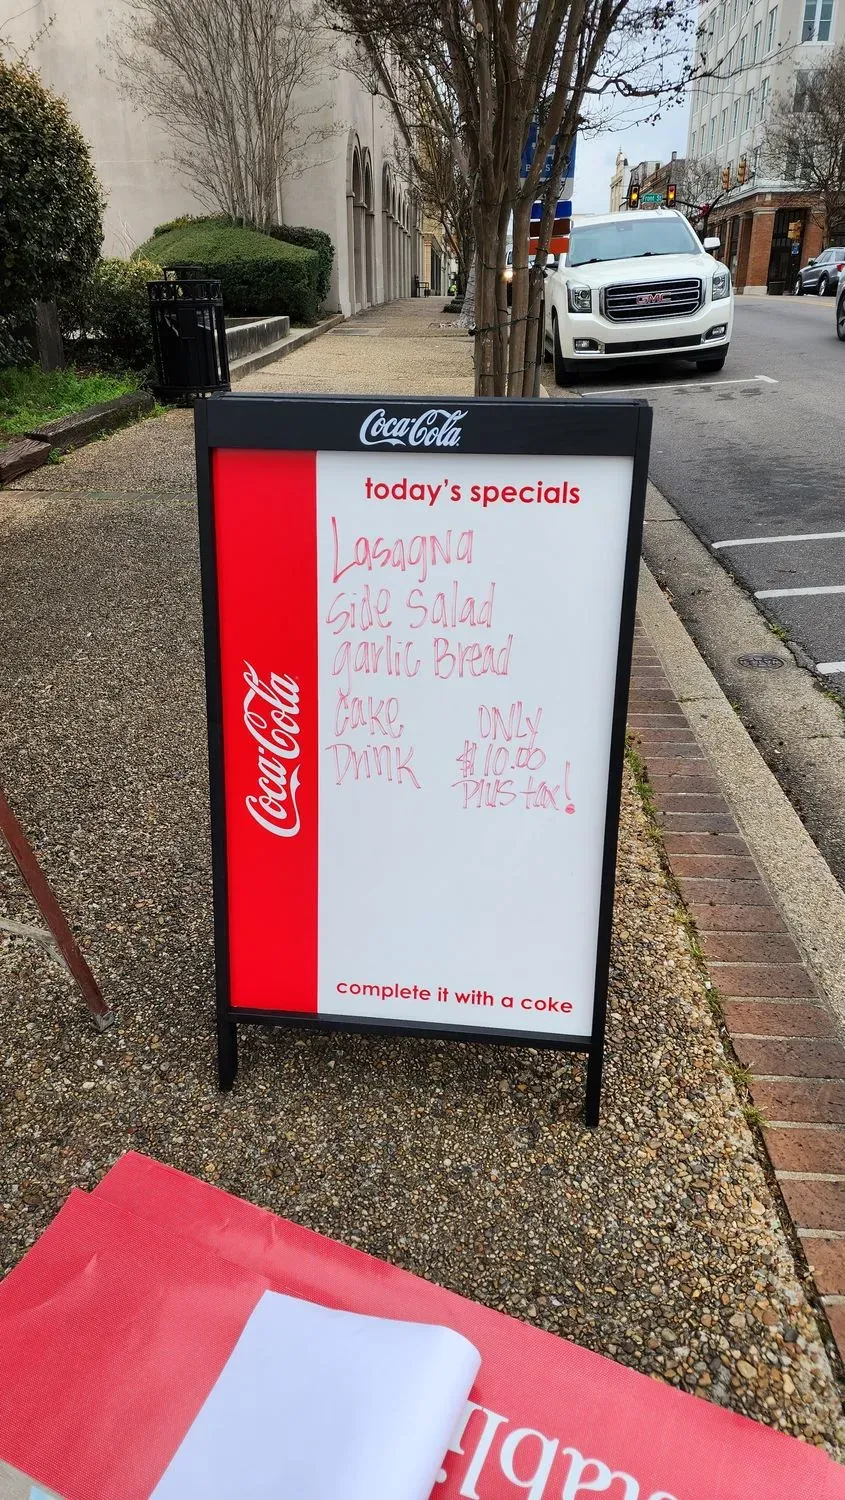 Front St
GMC
Coca-Cola
today's specials
Lasagna
side salad
garlic Bread
Cake
Drink
ONLY
$10.00
Plus tax!
Coca-Cola
complete it with a coke